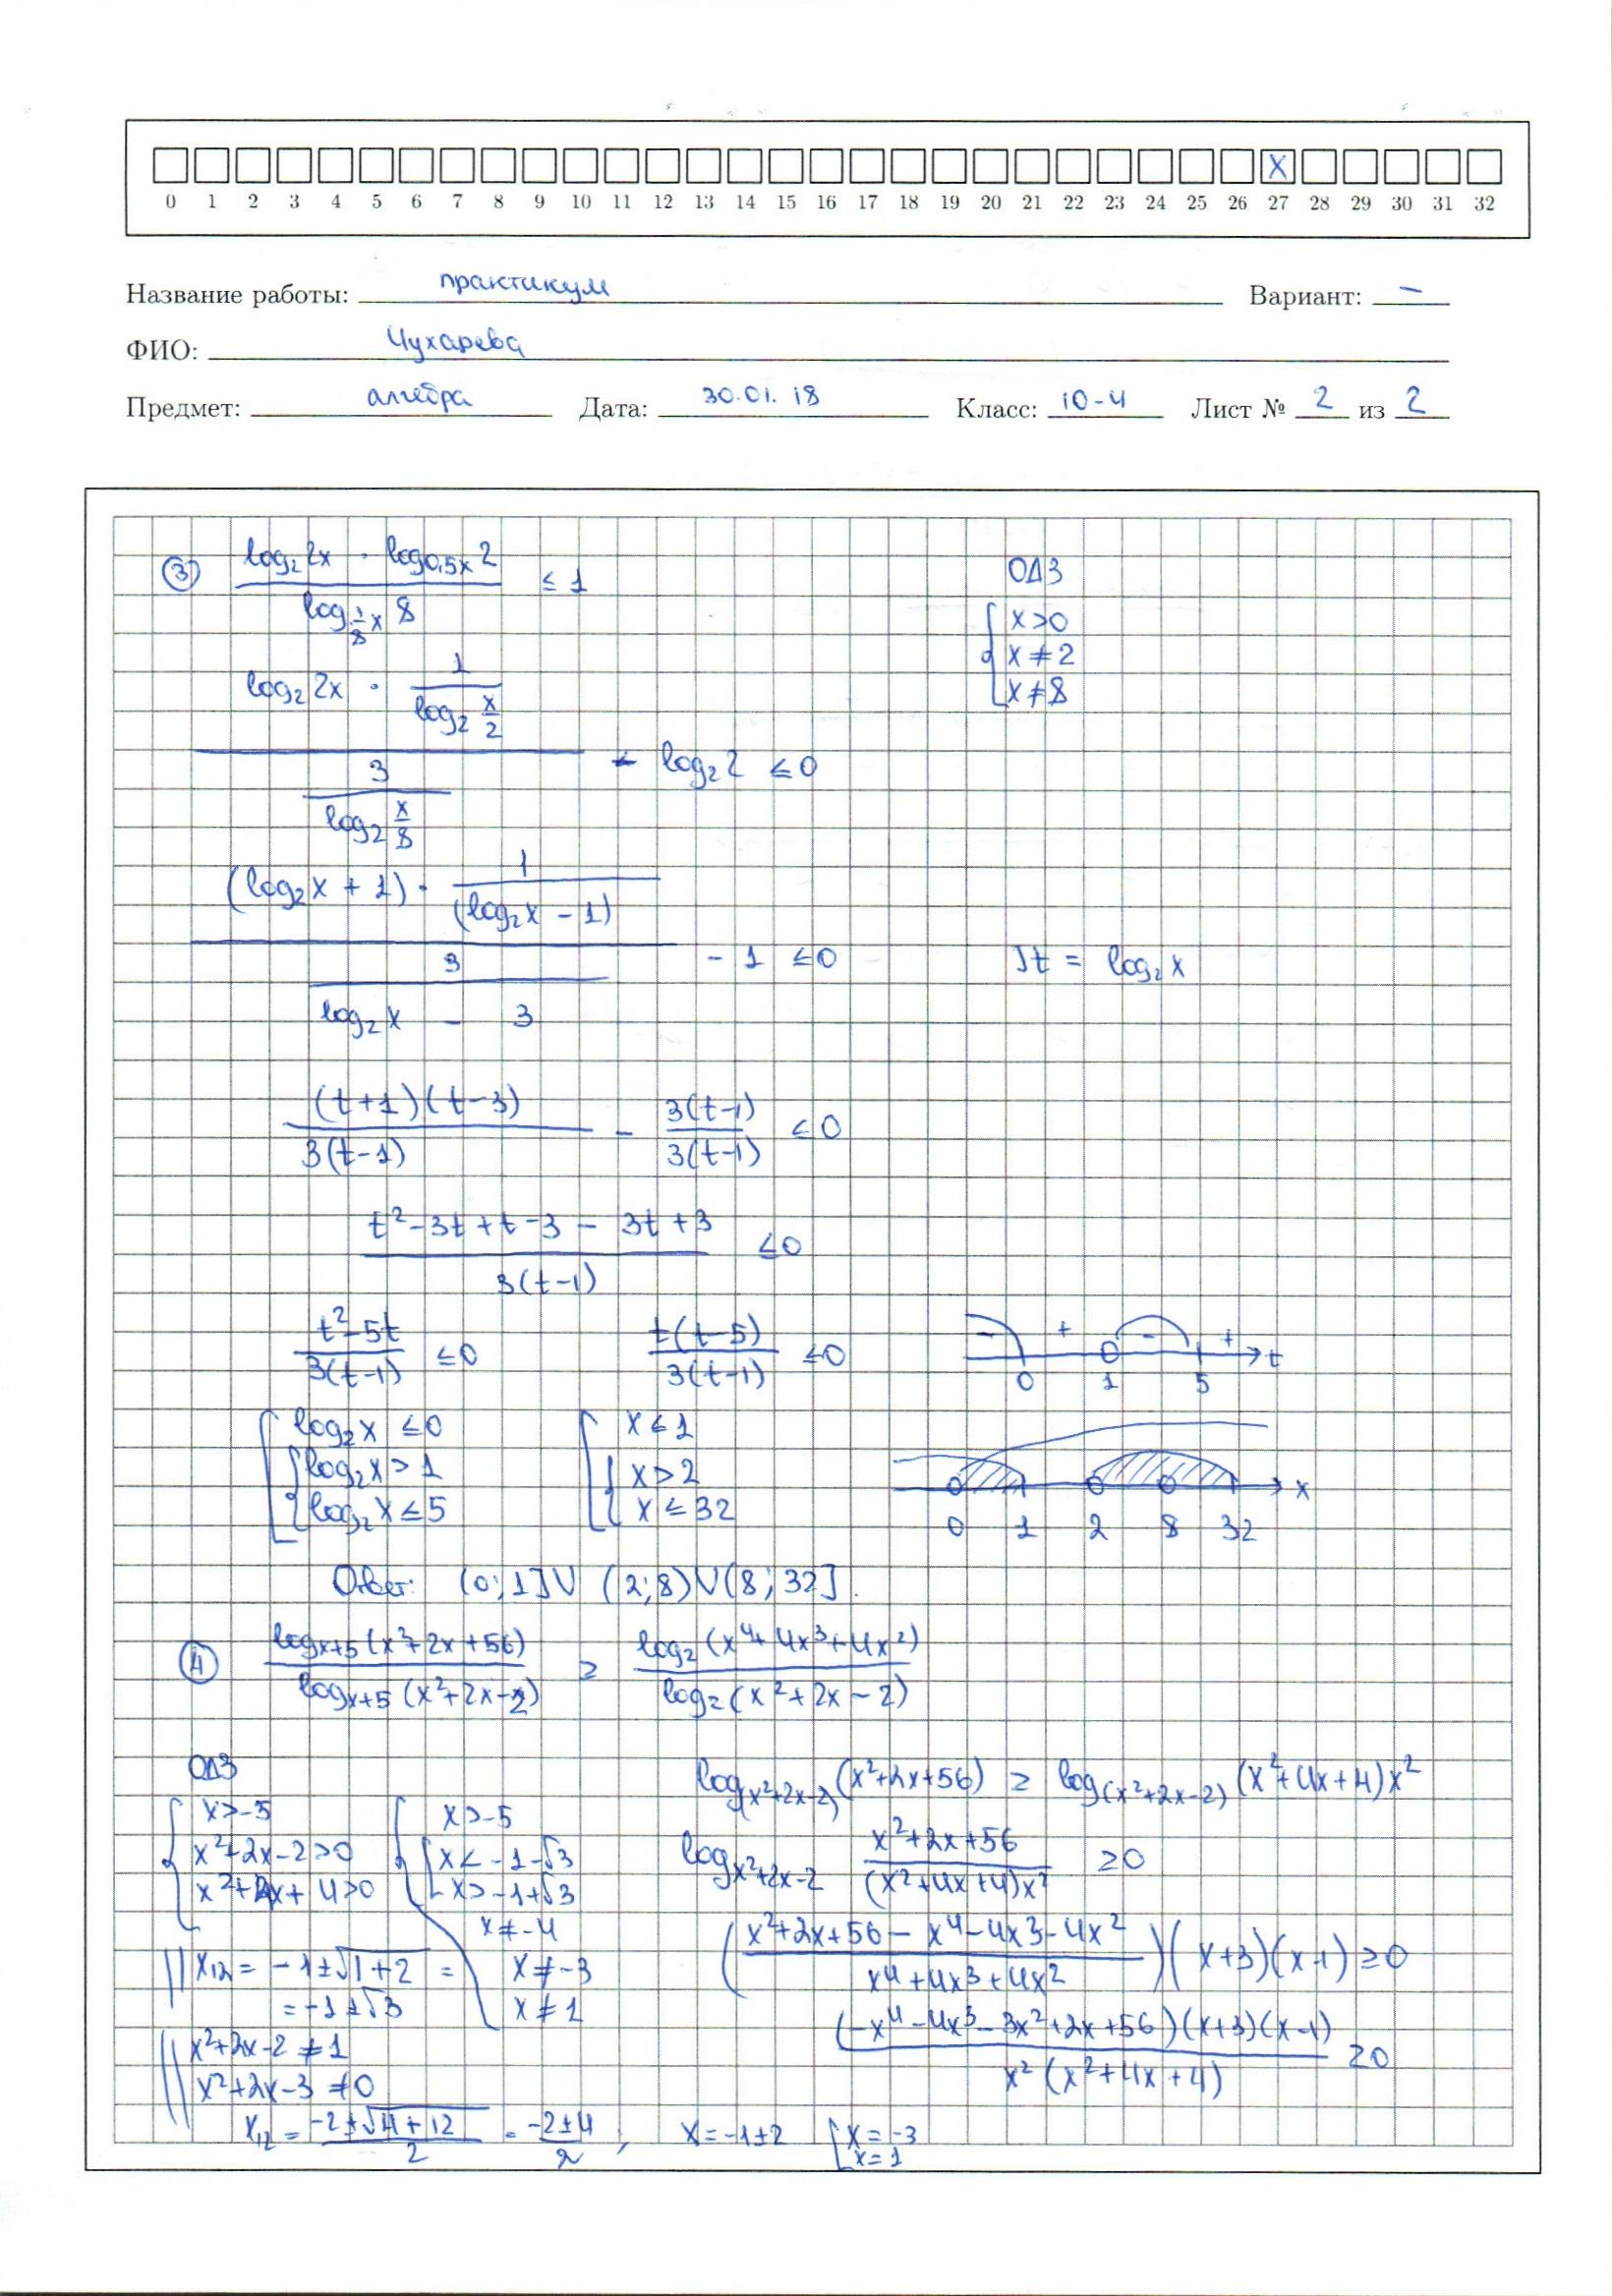 X
0 1 2 3 4 5 6 7 8 9 10 11 12 13 14 15 16 17 18 19 20 21 22 23 24 25 26 27 28 29 30 31 32
Название работы: практикум Вариант: –
ФИО: Чухарева
Предмет: алгебра Дата: 30.01.18 Класс: 10-4 Лист № 2 из 2
③ (log₂2x · log₀,₅ₓ2) / (log_{1/8 x} 8) ≤ 1
ОДЗ
{ x>0
x ≠ 2
x ≠ 8
(log₂2x · 1/(log₂ x/2)) / (3/(log₂ x/8)) - log₂2 ≤ 0
((log₂x + 1) · 1/(log₂x - 1)) / (3/(log₂x - 3)) - 1 ≤ 0
]t = log₂x
(t+1)(t-3)/3(t-1) - 3(t-1)/3(t-1) ≤ 0
(t²-3t+t-3 - 3t+3)/3(t-1) ≤ 0
(t²-5t)/3(t-1) ≤ 0 t(t-5)/3(t-1) ≤ 0
- + - + t
0 1 5
[ log₂x ≤ 0
{ log₂x > 1
log₂x ≤ 5
[ x ≤ 1
{ x > 2
x ≤ 32
x
0 1 2 8 32
Ответ: (0;1]∪(2;8)∪(8;32].
④ log_{x+5}(x²+2x+56) / log_{x+5}(x²+2x-2) ≥ log₂(x⁴+4x³+4x²) / log₂(x²+2x-2)
ОДЗ
{ x>-5
x²+2x-2>0
x²+4x+4>0
{ x>-5
[ x<-1-√3
x>-1+√3
x≠-4
x≠-3
x≠1
|| x₁₂ = -1±√1+2 =
= -1±√3
|| x²+2x-2 ≠ 1
x²+2x-3 ≠ 0
x₁₂ = (-2±√4+12)/2 = (-2±4)/2 , x=-1±2 [ x=-3
x=1
log_{x²+2x-2}(x²+2x+56) ≥ log_{(x²+2x-2)}(x²+4x+4)x²
log_{x²+2x-2} (x²+2x+56)/((x²+4x+4)x²) ≥0
((x²+2x+56-x⁴-4x³-4x²)/(x⁴+4x³+4x²))(x+3)(x-1)≥0
(-x⁴-4x³-3x²+2x+56)(x+3)(x-1)/(x²(x²+4x+4)) ≥0